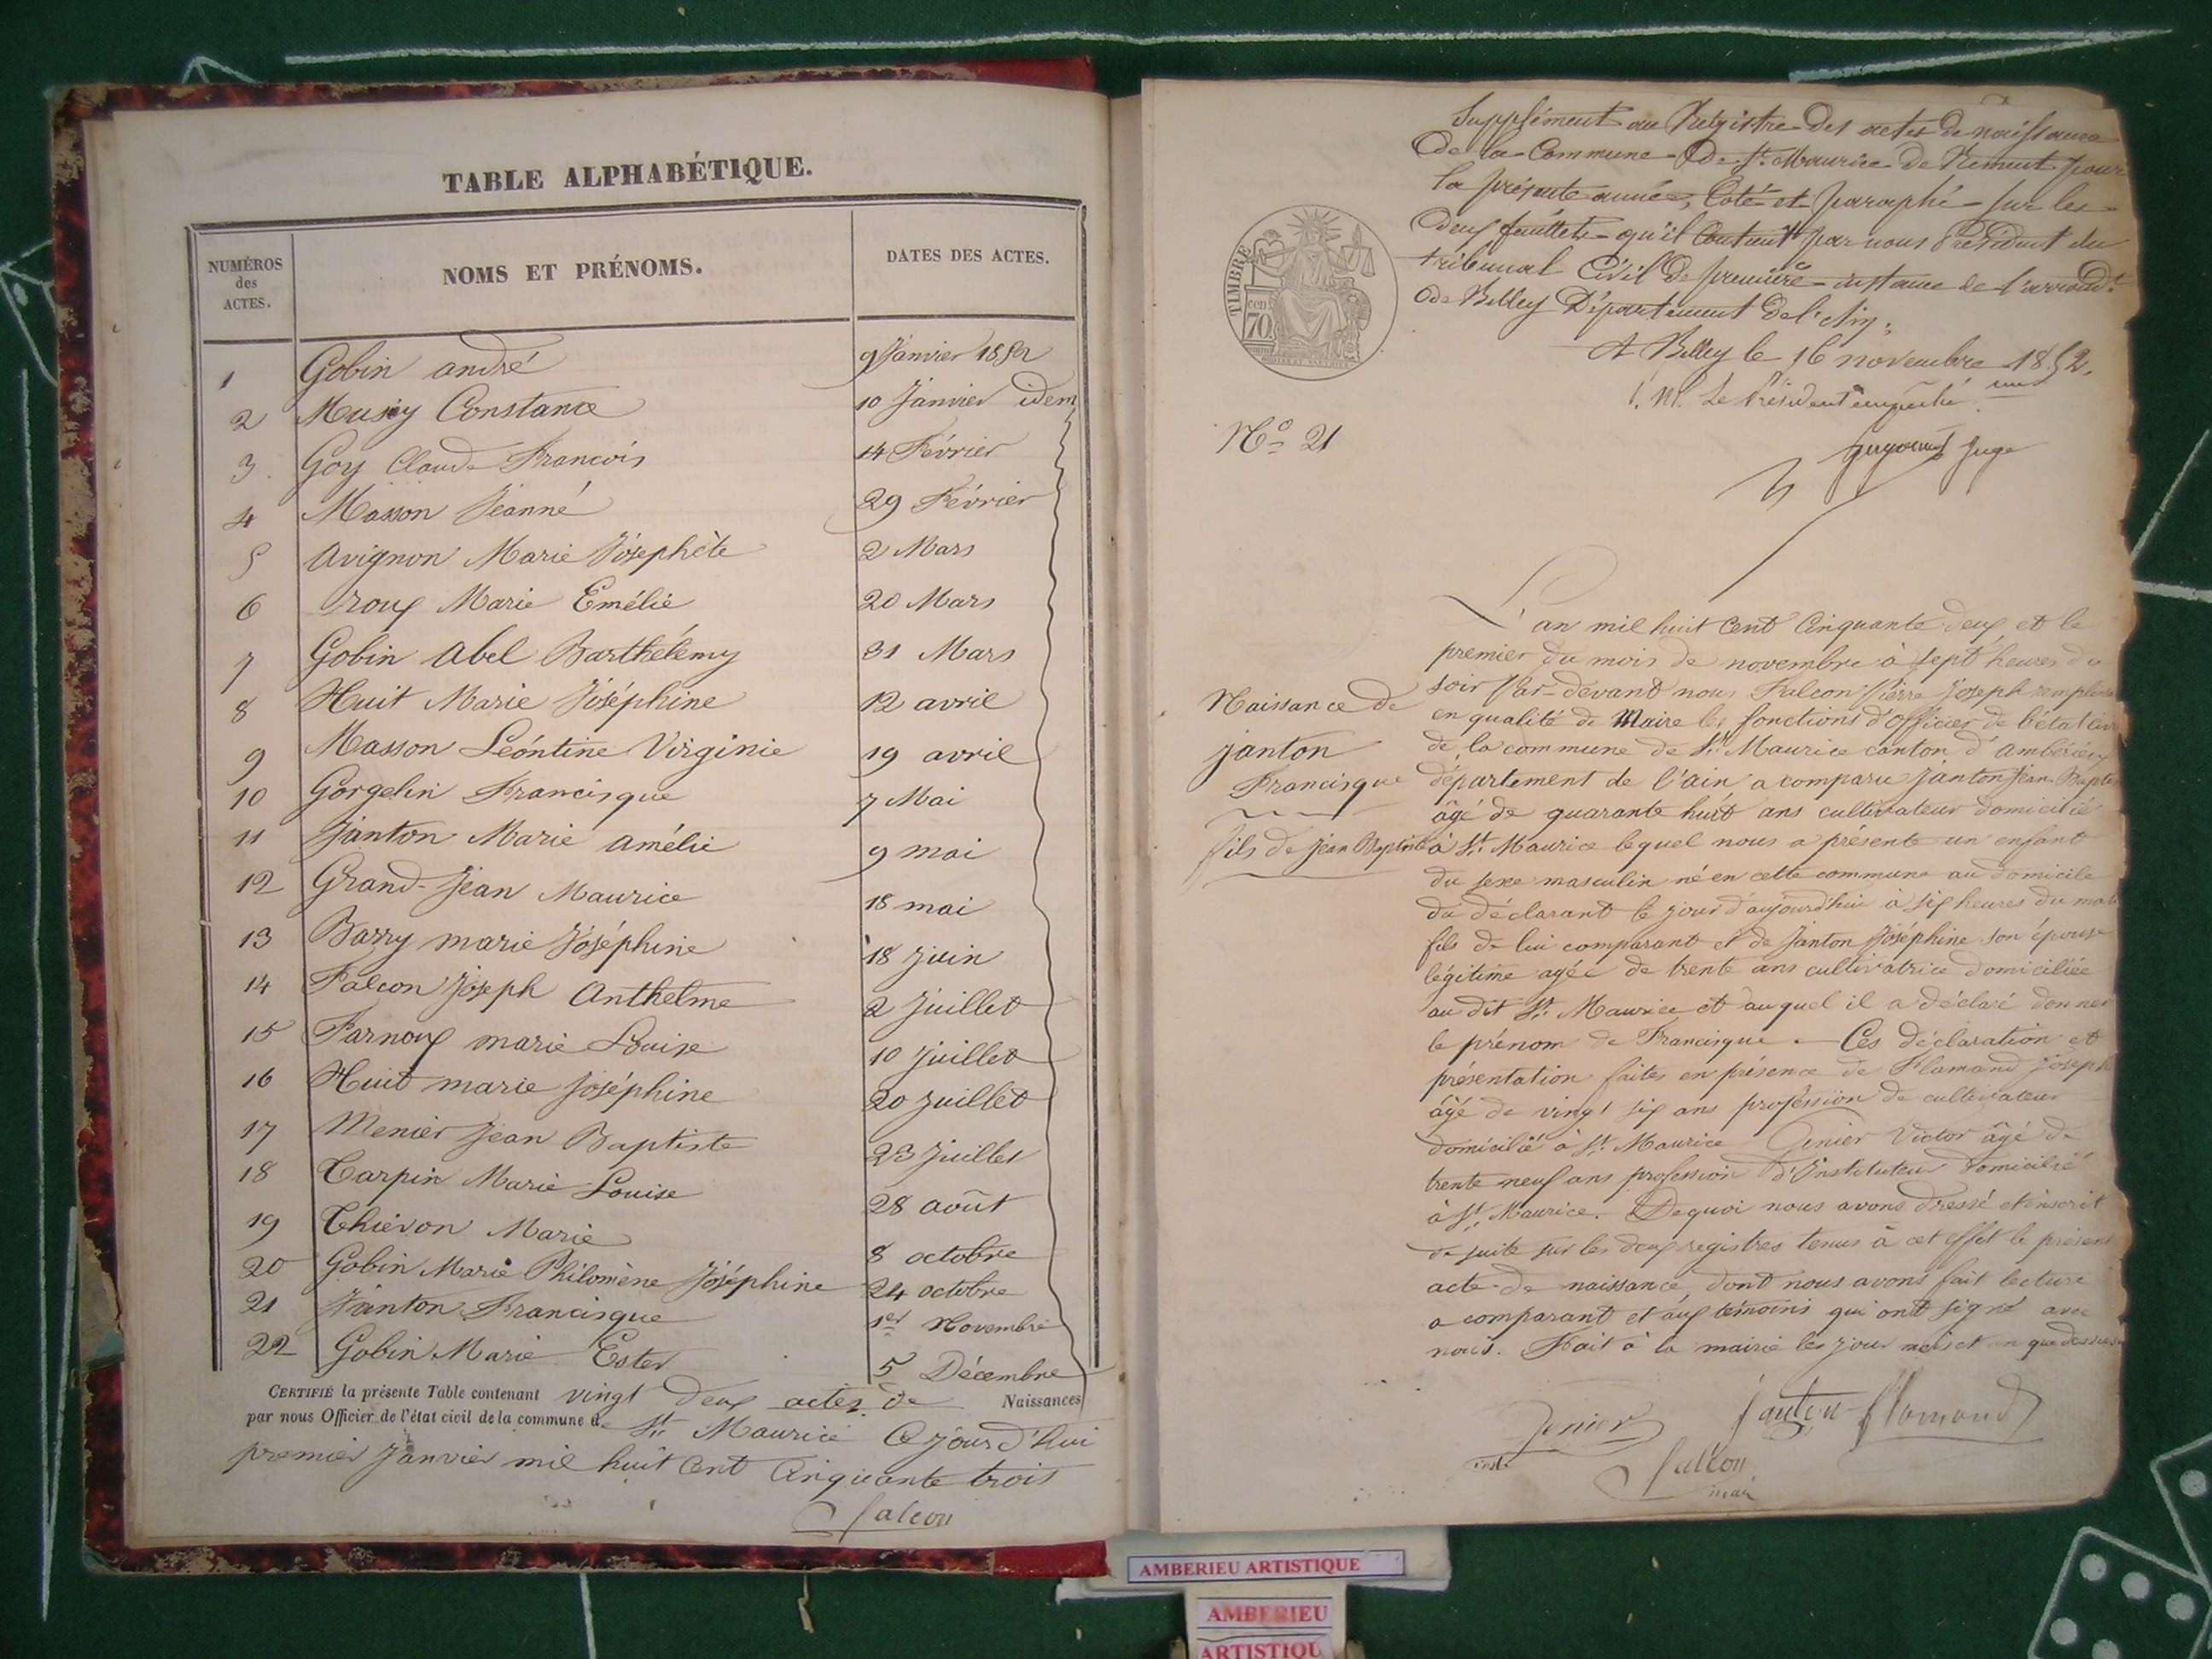 TABLE ALPHABÉTIQUE.
NUMÉROS
des
ACTES.
NOMS ET PRÉNOMS.
DATES DES ACTES.
1 Gobin andré 9 Janvier 1852
2 Musy Constance 10 Janvier idem
3 Goy Claude Francois 14 Février
4 Masson Jeanne 29 Février
5 Avignon Marie Josephète 2 Mars
6 roux Marie Emélie 20 Mars
7 Gobin Abel Barthélemy 31 Mars
8 Huit Marie Joséphine 12 avril
9 Masson Léontine Virginie 19 avril
10 Gorgelin Francisque 7 Mai
11 Janton Marie amélie 9 mai
12 Grand-Jean Maurice 18 mai
13 Barry marie Joséphine 18 juin
14 Falcon Joseph Anthelme 2 Juillet
15 Farnoux marie Louise 10 juillet
16 Huit marie Joséphine 20 juillet
17 Menier Jean Baptiste 23 juillet
18 Carpin Marie Louise 28 août
19 Thiévon Marie 8 octobre
20 Gobin Marie Philomène Joséphine 24 octobre
21 Janton Francisque 1er Novembre
22 Gobin Marie Ester 5 Décembre
CERTIFIÉ la présente Table contenant vingt deux actes de Naissances
par nous Officier de l'état civil de la commune de St. Maurice Ce jourd'hui
premier Janvier mil huit Cent Cinquante trois
Falcon
Supplément au Régistre des actes de naissance
de la Commune de St. Maurice de Rémens pour
la présente année, Coté et paraphé sur les
deux feuillets qu'il contient par nous Président du
tribunal Civil de première instance de l'arrondt
de Belley Département de l'Ain;
A Belley le 16 novembre 1852.
Le Président empêché
Juge
TIMBRE
70
No 21
Naissance de
janton
Francisque
fils de jean Baptiste
L'an mil huit Cent Cinquante deux et le
premier du mois de novembre à sept heures du
soir Par-devant nous Falcon Pierre Joseph
en qualité de Maire les fonctions d'officier de l'état civil
de la commune de St. Maurice canton d'ambérieu
département de l'ain a comparu Janton Jean Baptiste
âgé de quarante huit ans cultivateur domicilié
à St. Maurice lequel nous a présente un enfant
du sexe masculin né en cette commune au domicile
du déclarant le jour d'aujourd'hui à six heures du mati
fils de lui comparant et de Janton Joséphine son épouse
légitime agée de trente ans cultivatrice domiciliée
au dit St. Maurice et auquel il a déclaré donner
le prénom de Francisque. Ces déclaration et
présentation faites en présence de Flamand Joseph
âgé de vingt six ans profession de cultivateur
domicilié à St. Maurice Genier Victor âgé de
trente neuf ans profession d'Instituteur domicilié
à St. Maurice. De quoi nous avons dressé et inscrit
de suite sur les deux registres tenus à cet effet le présent
acte de naissance, dont nous avons fait lecture
a comparant et aux témoins qui ont signé avec
nous. Fait à la mairie les jour mois et an que dessus
Genier Janton Flamand
inst. Falcon
maire
AMBERIEU ARTISTIQUE
AMBERIEU
ARTISTIQU